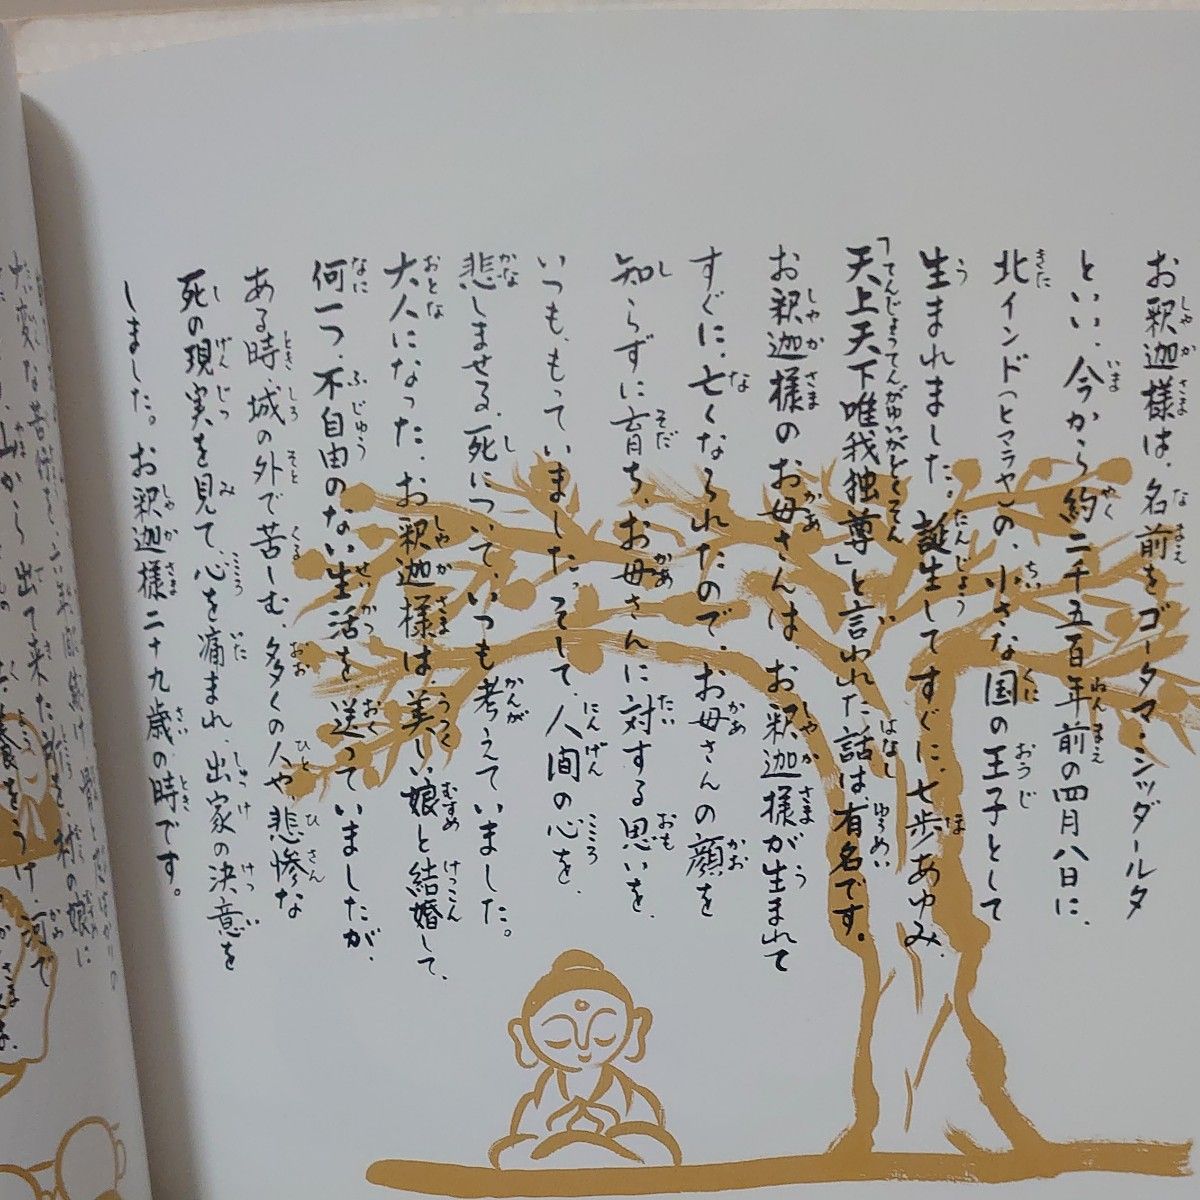 お釈迦様は、名前をゴータマ・シッダールタ
といい、今から約二千五百年前の四月八日に、
北インド(ヒマラヤ)の、小さな国の王子として
生まれました。誕生してすぐに、七歩あゆみ、
「天上天下唯我独尊」と言われた話は有名です。
お釈迦様のお母さんは、お釈迦様が生まれて
すぐに、亡くなられたので、お母さんの顔を
知らずに育ち、お母さんに対する思いを、
いつも、もっていました。そして、人間の心を、
悲しませる、死について、いつも考えていました。
大人になった、お釈迦様は、美しい娘と結婚して、
何一つ、不自由のない生活を、送っていましたが、
ある時、城の外で苦しむ、多くの人や、悲惨な
死の現実を見て、心を痛まれ、出家の決意を
しました。お釈迦様二十九歳の時です。
山から出て来た所を、村の娘に